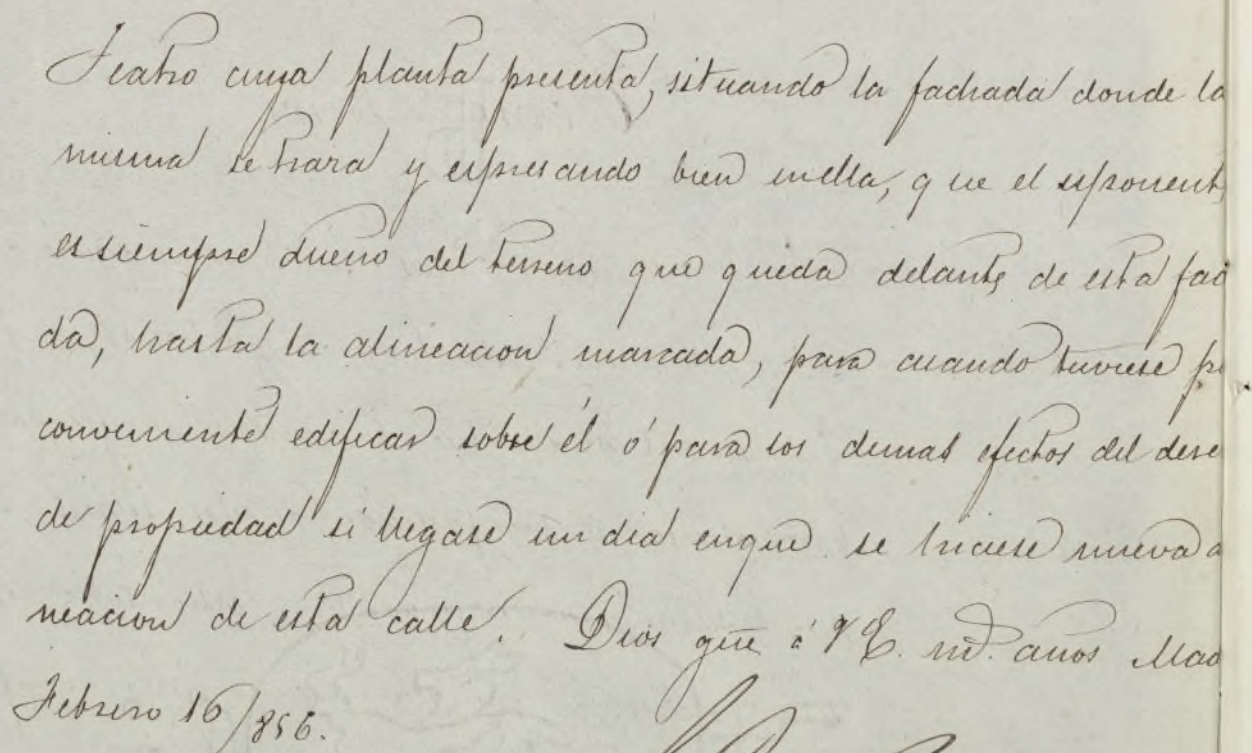 Teatro cuya planta presenta, situando la fachada donde la
misma se hara y espresando bien en ella, que el esponent
es siempre dueno del terreno que queda delante de esta fac
da, hasta la alineacion marcada, para cuando tuviese p
conveniente edificar sobre él ó para los demas efectos del dere
de propiedad si llegase un dia en que se hiciese nueva a
neacion de esta calle. Dios gue á V E. ms. anos Mad
Febrero 16/856.